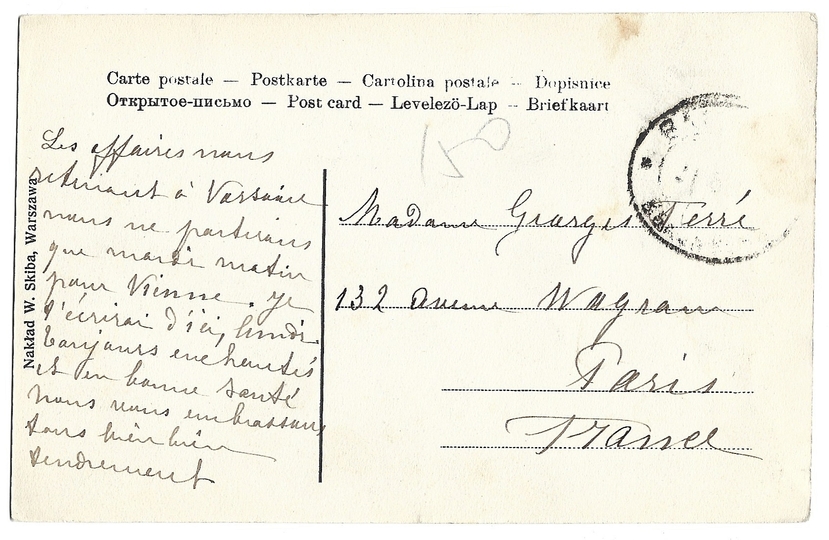 Carte postale — Postkarte — Cartolina postale — Dopisnice
Открытое-письмо — Post card — Levelező-Lap — Briefkaart
150
Les affaires nous
retenant à Varsovie
nous ne partirons
que mardi matin
pour Vienne. Je
t'écrirai d'ici, lundi.
Toujours enchantés
et en bonne santé
nous vous embrassons
tous bien bien
tendrement
Nakład W. Skiba, Warszawa
Madame Georges Ferré
132 avenue Wagram
Paris
France